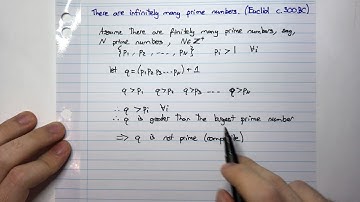 There are infinitely many prime numbers. (Euclid c.300BC)
Assume there are finitely many prime numbers, say,
N prime numbers, N∈ℤ⁺
{p₁, p₂, ...., p_N} pᵢ > 1 ∀i
let q = (p₁p₂p₃...p_N) + 1
q > p₁ q > p₂ q > p₃ .... q > p_N
∴ q > pᵢ ∀i
∴ q is greater than the largest prime number
⇒ q is not prime (composite)